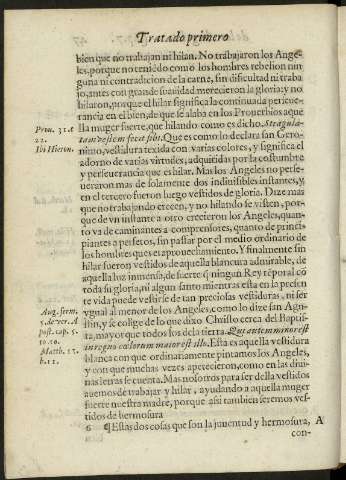 Tratado primero
bien que no trabajan ni hilan. No trabajaron los Ange-
les, porque no teniēdo como los hombres rebelion nin
guna ni contradicion de la carne, sin dificultad ni traba
jo, antes con grande suauidad merecieron la gloria: y no
hilaron, porque el hilar significa la continuada perseue-
rancia en el bien, de que se alaba en los Prouerbios aque
lla muger fuerte, que hilando como es dicho. Stragula-
Prou. 31. &
22.
tam vestem fecit sibi. Que es como lo declara san Gero-
Ibi Hieron.
nimo, vestidura texida con varias colores, y significa el
adorno de varias virtudes, adquitidas por la costumbre
y perseuerancia que es hilar. Mas los Angeles no perse-
ueraron mas de solamente dos indiuisibles instantes, y
en el tercero fueron luego vestidos de gloria. Dize mas
que no trabajando crecen, y no hilando se visten, por-
que de vn instante a otro crecieron los Angeles, quan-
to va de caminantes a comprensores, quanto de princi-
piantes a perfetos, sin passar por el medio ordinario de
los hombres que es aprouechamiento. Y finalmente sin
hilar fueron vestidos de aquella blancura admirable, de
aquella luz inmensa, de suerte q̄ ningun Rey tēporal cō
toda su gloria, ni algun santo mientras esta en la presen
te vida puede vestirse de tan preciosas vestiduras, ni ser
ygual al menor de los Angeles, como lo dize san Agu-
Aug. serm.
stin, y se colige de lo que dixo Christo cerca del Baptis-
3. de ver. A
post. cap. 5.
ta, mayor que todos los de la tierra. Qui autem minor est
10. 10.
in regno cælorum maior est illo. Esta es aquella vestidura
Matth. 11.
b. 11.
blanca con que ordinariamente pintamos los Angeles,
y con que muchas vezes aparecieron, como en las diui-
nas letras se cuenta. Mas nosotros para ser della vestidos
auemos de trabajar y hilar, ayudando a aquella muger
fuerte nuestra madre, porque assi tambien seremos ves-
tidos de hermosura
6 ¶ Estas dos cosas que son la juuentud y hermosura, A
con-